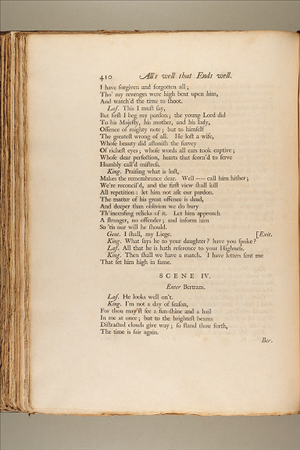 410 All's well that Ends well.
I have forgiven and forgotten all;
Tho' my revenges were high bent upon him,
And watch'd the time to shoot.
Laf. This I must say,
But first I beg my pardon; the young Lord did
To his Majesty, his mother, and his lady,
Offence of mighty note; but to himself
The greatest wrong of all. He lost a wife,
Whose beauty did astonish the survey
Of richest eyes; whose words all ears took captive;
Whose dear perfection, hearts that scorn'd to serve
Humbly call'd mistress.
King. Praising what is lost,
Makes the remembrance dear. Well — call him hither;
We're reconcil'd, and the first view shall kill
All repetition: let him not ask our pardon.
The matter of his great offence is dead,
And deeper than oblivion we do bury
Th' incensing relicks of it. Let him approach
A stranger, no offender; and inform him
So 'tis our will he should.
Gent. I shall, my Liege. [Exit.
King. What says he to your daughter? have you spoke?
Laf. All that he is hath reference to your Highness.
King. Then shall we have a match. I have letters sent me
That set him high in fame.
SCENE IV.
Enter Bertram.
Laf. He looks well on't.
King. I'm not a day of season,
For thou may'st see a sun-shine and a hail
In me at once; but to the brightest beams
Distracted clouds give way; so stand thou forth,
The time is fair again.
Ber.